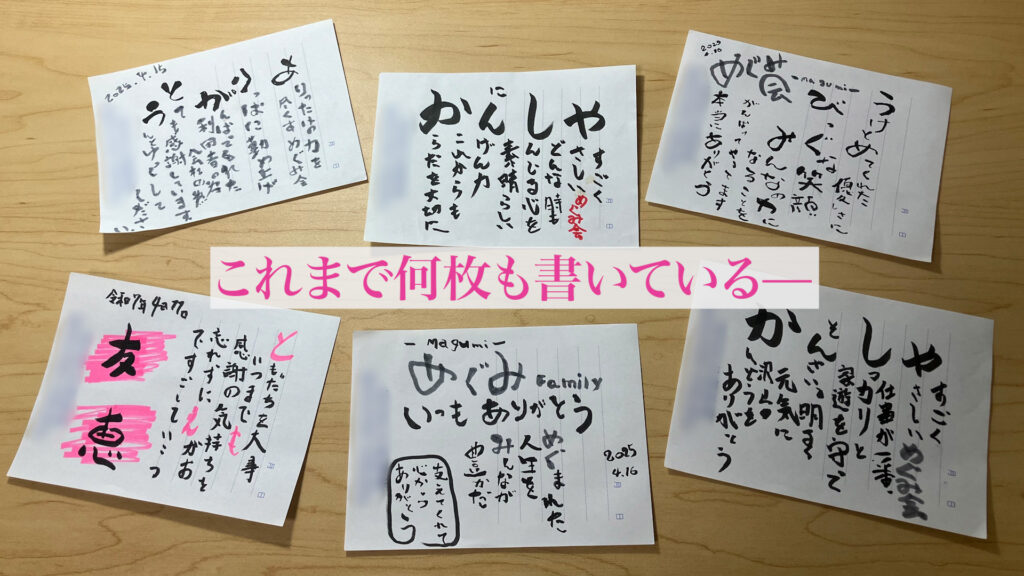 2025.4.15
ありったけの力を
尽くすめぐみ会
りっぱに勤め上げ
がんばってくれた
利用者の方
とても感謝してます
すごく
やさしいめぐみ会
どんな時も
しんじる心を
素晴らしい
にんげん力
これからも
からだを大切に
2025
4.16
めぐみ会
-magumi-
うけとめてくれた
優しさに
笑顔
みんなの力に
なることを
がんばってやってます
本当にありがとう
これまで何枚も書いている―
令和7年4月17日
ともだちを大事
いつまでも
感謝の気持ちを
忘れずにえがお
ですごしていこう
友
恵
- Magumi -
めぐみ Family
いつもありがとう
めぐまれた
人生を
みんなが
豊かだ
支えてくれて
心から
ありがとう
2025
4.16
すごく
やさしいめぐみ会
仕事が一番、
しっかりと
を守って
明るく
元気に
沢山の
かんどうを
ありがとう